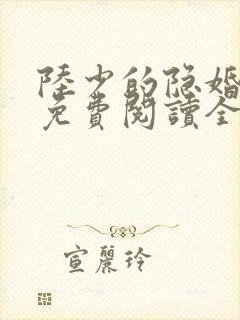 陸少的隐婚
免費閱讀全
宣麗玲